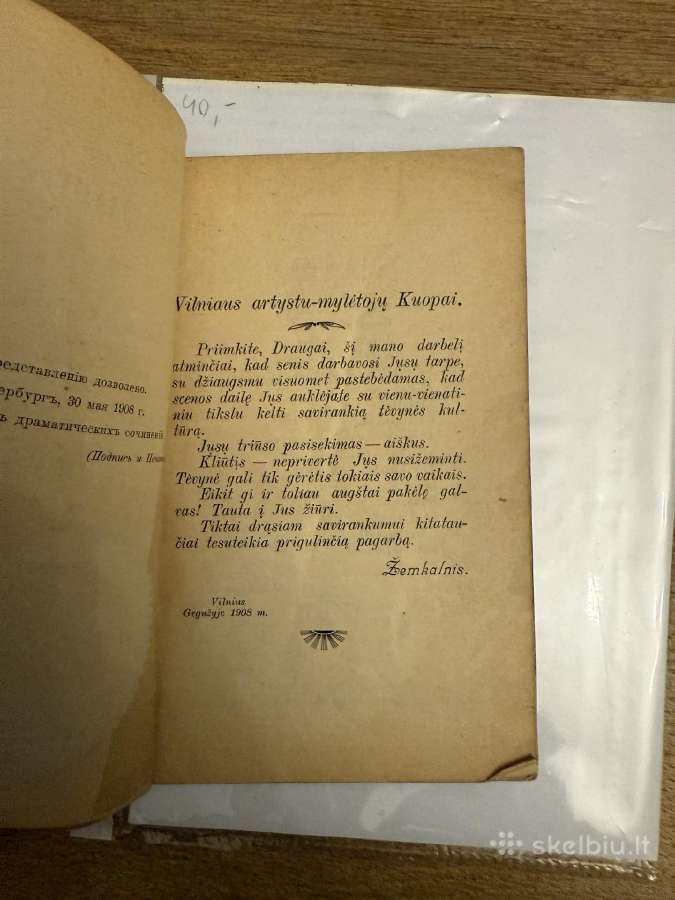 40,-
представленію дозволено.
ербургъ, 30 мая 1908 г.
ъ драматическихъ сочиненій
(Подпись и Печа
Vilniaus artystu-mylėtojų Kuopai.
Priimkite, Draugai, šį mano darbelį
atminčiai, kad senis darbavosi Jųsų tarpe,
su džiaugsmu visuomet pastebėdamas, kad
scenos dailę Jųs auklėjate su vienu-vienati-
niu tikslu kelti savirankią tėvynės kul-
tūrą.
Jusų triūso pasisekimas — aiškus.
Kliūtįs — neprivertė Jųs nusižeminti.
Tėvynė gali tik gėrėtis tokiais savo vaikais.
Eikit gi ir toliau augštai pakėlę gal-
vas! Tauta į Jus žiūri.
Tiktai drąsiam savirankumui kitatau-
čiai tesuteikia prigulinčią pagarbą.
Žemkalnis.
Vilnius
Gegužyje 1908 m.
skelbiu.lt